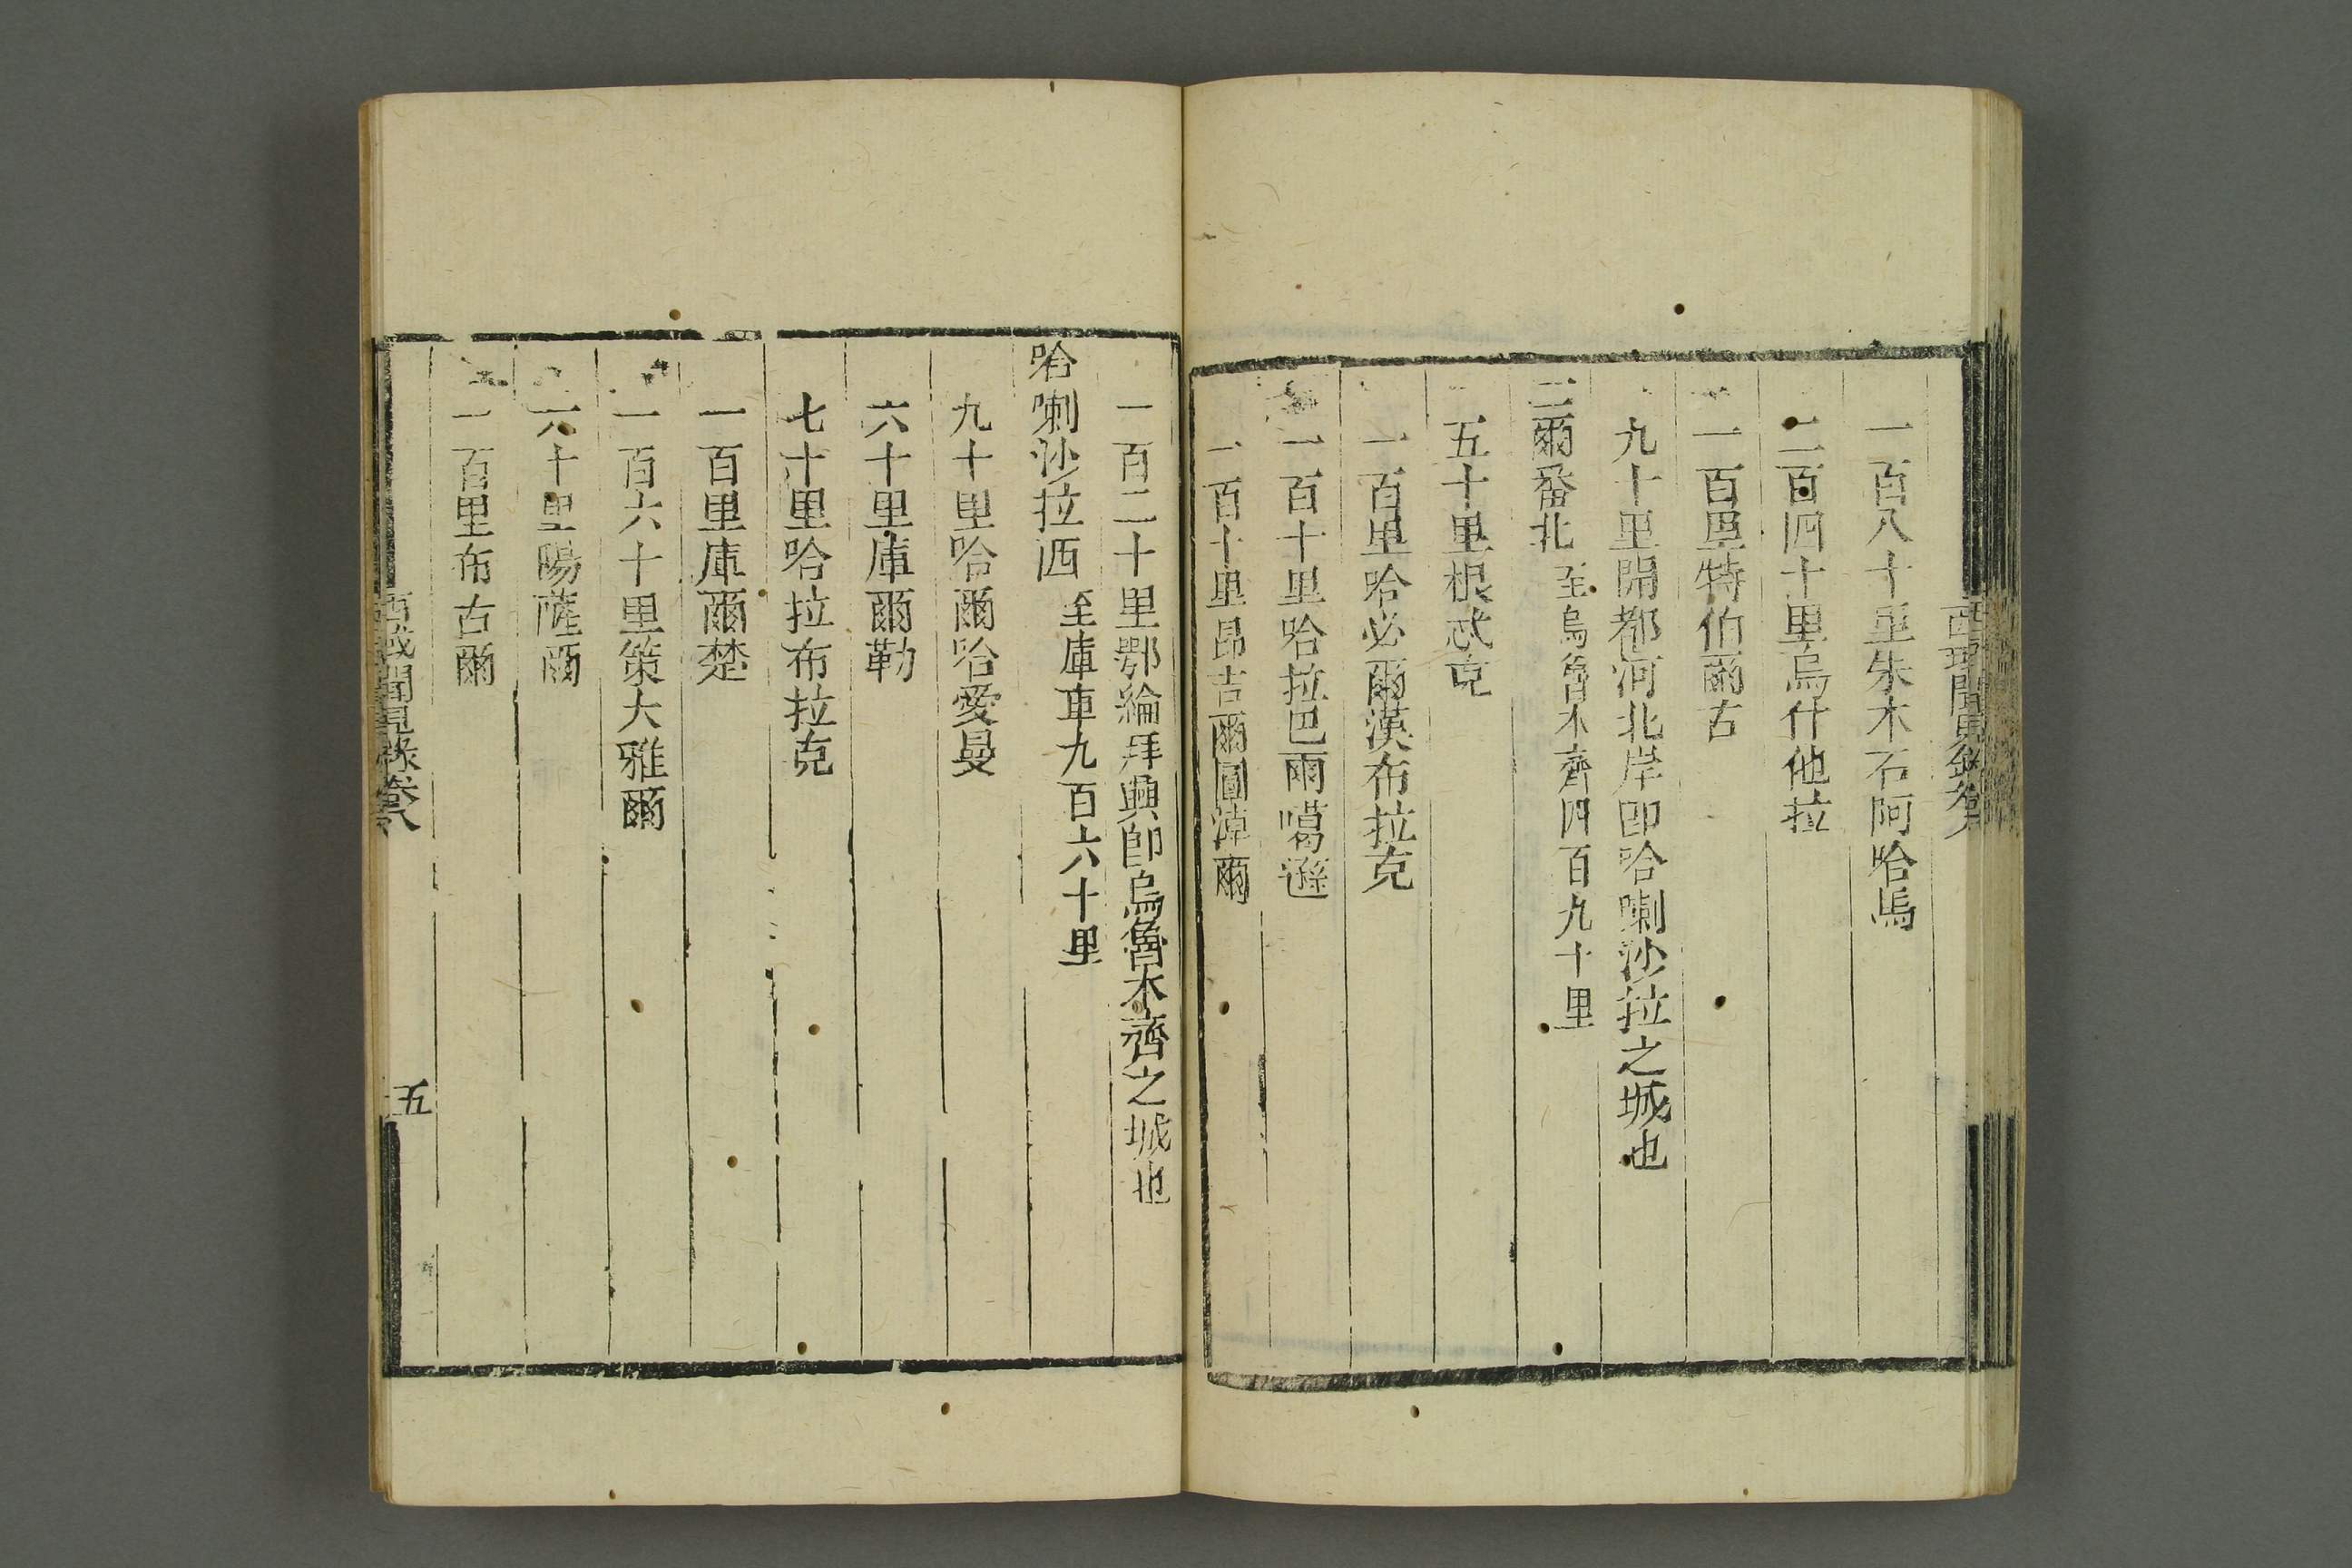 西域聞見錄卷八
一百八十里朱木石阿哈烏
二百四十里烏什他拉
一百里特伯爾古
九十里開都河北岸即哈喇沙拉之城也
土爾番北至烏魯木齊四百九十里
五十里根忒克
一百里哈必爾漢布拉克
一百十里哈拉巴爾噶遜
一百十里昂吉爾圖淖爾
一百二十里鄂綸拜興卽烏魯木齊之城也
哈喇沙拉西至庫車九百六十里
九十里哈爾哈愛曼
六十里庫爾勒
七十里哈拉布拉克
一百里庫爾楚
一百六十里策大雅爾
六十里陽薩爾
一百里布古爾
西域聞見錄卷八
五